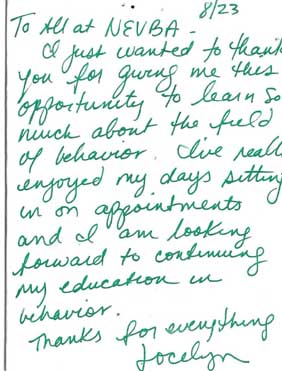 8/23
To All at NEVBA -
I just wanted to thank
you for giving me this
opportunity to learn so
much about the field
of behavior. I've really
enjoyed my days sitting
in on appointments
and I am looking
forward to continuing
my education in
behavior.
Thanks for everything
Jocelyn